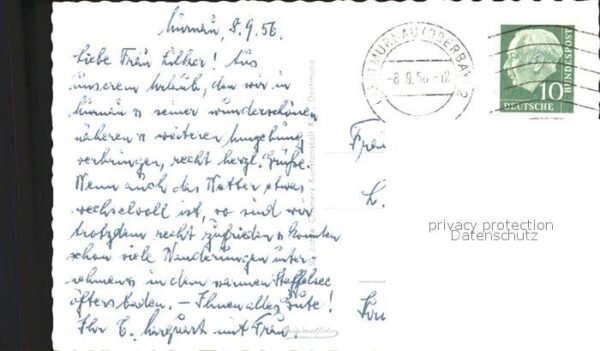 Murnau, 8.9.56.
Liebe Frau Lilher! Aus
unserem Urlaub, den wir in
Murnau u. seiner wunderschönen
näheren u. weiteren Umgebung
verbringen, recht herzl. Grüße.
Wenn auch das Wetter etwas
wechselvoll ist, so sind wir
trotzdem recht zufrieden u. konnten
schon viele Wanderungen unter-
nehmen u. in dem warmen Staffelsee
öfters baden. – Ihnen alles Gute!
Ihr E. mit Frau.
Originalfoto
Cramers Kunstanstalt KG, Dortmund
MURNAU (OBERBAY)
-8.9.56.-12
10
DEUTSCHE
BUNDESPOST
Frau
L.
privacy protection
Datenschutz